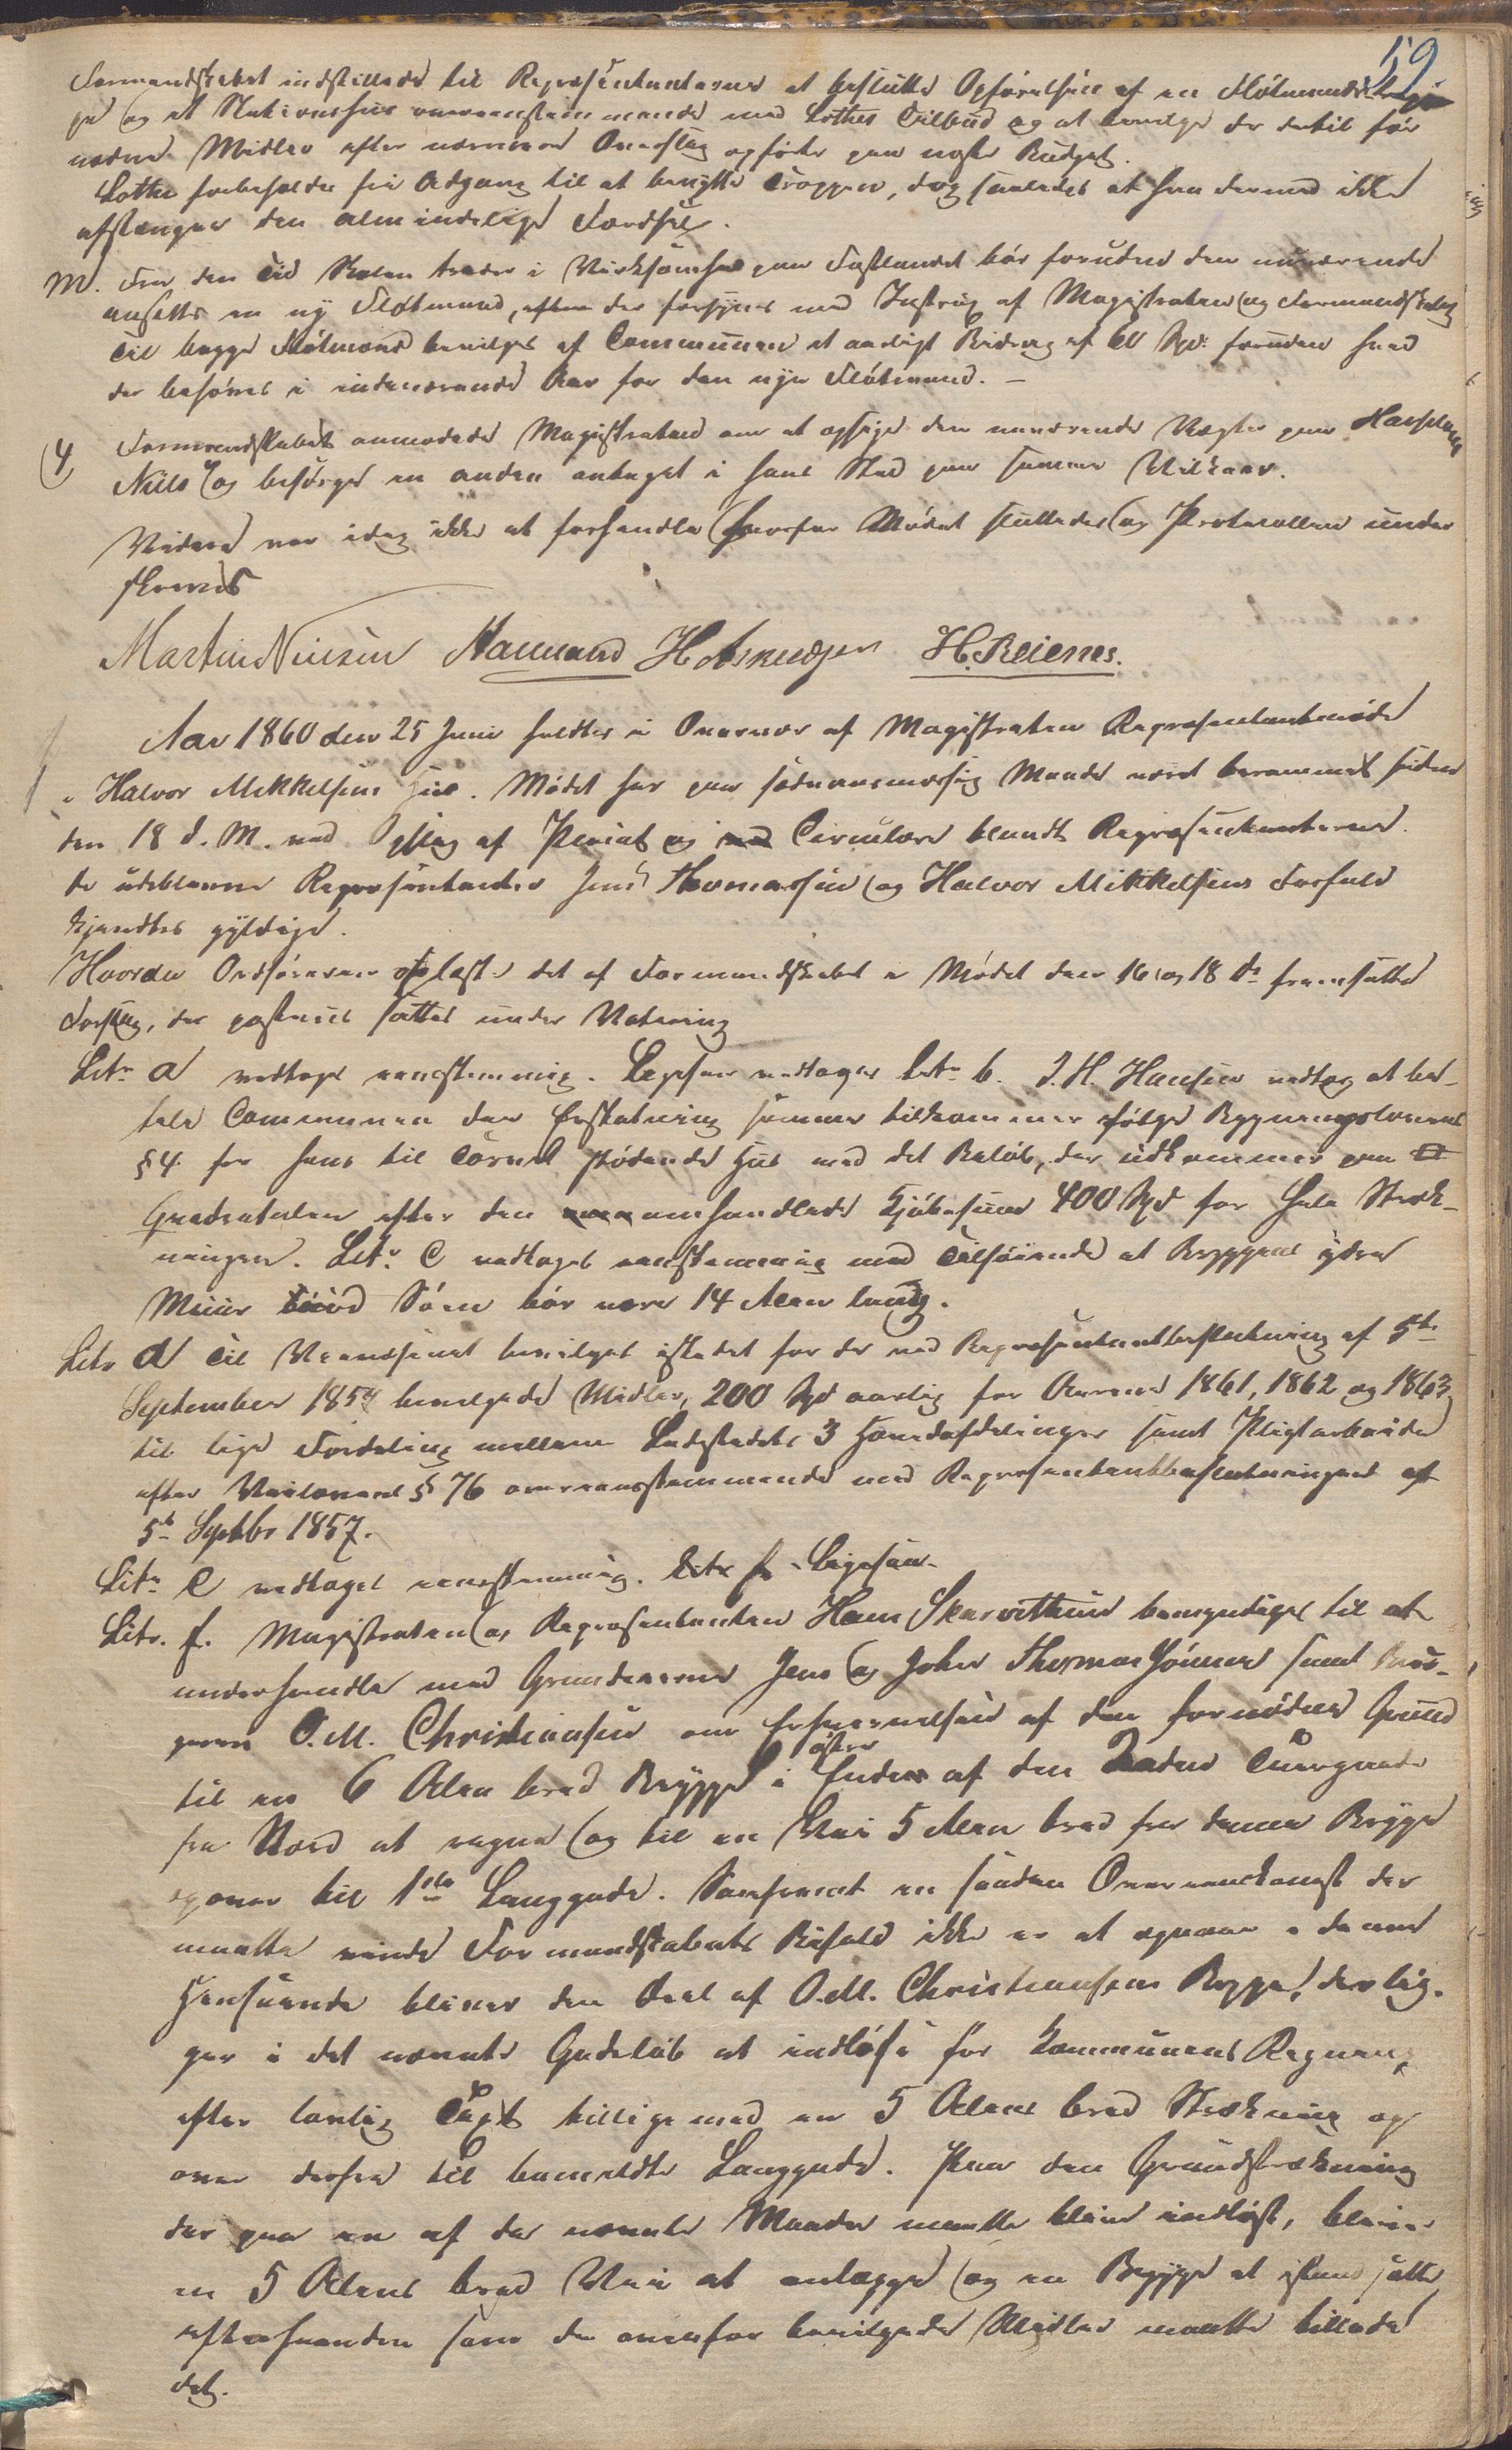 59
Formandskabet indstillede til Repræsentanterne at beslutte Opførelsen af en Flötmands
ge og et Stationshus overeensstemmende med Lothes Tilbud og at bevilge de dertil for
nødne Midler efter nærmere Overslag opförte paa næste Budget.
Lothe forbeholdes fri Adgang til at benytte Trappen, dog saaledes at han dermed ikke
afstænger den almindelige Færdsel.
M. Fra den Tid Skolen træder i Virksomhed paa Fastlandet bör foruden den nuværende
ansættes en ny Flötmand, der forsynes med Instrux af Magistraten og Formandskabet
Til begge Flötmænd bevilges af Communen et aarligt Bidrag af 60 Spd: foruden hvad
der behöves i indeværende Aar for den nye Flötmand. –
4 Formandskabet anmodede Magistraten om at opsige den nuværende Vægter paa
Niels og besörge en anden antaget i hans Sted paa samme Vilkaar.
Videre var idag ikke at forhandle hvorfor Mödet sluttedes og Protocollen under
skreves
Martin Nielsen Hammand H Asmudsen H. Reienes.
Aar 1860 den 25 Juni holdtes i Overvær af Magistraten Repræsentantmöde
i Halvor Mikkelsens Huus. Mödet har paa sædvansmæssig Maade været berammet siden
den 18 d. M. ved Opslag af Placat og Circulære blandt Repræsentanterne.
de udeblevne Repræsentanter Jens Thomassen og Halvor Mikkelsens Forfald
kjendtes gyldige.
Hvorda Ordføreren oplæste det af Formandskabet i Mödet den 16 og 18 ds fremsatte
Forslag, der postviis sattes under Votering
Litr a vedtoges eenstemmig. Ligesaa vedtoges Litr b. J. H. Hansen vedtog at be-
tale Communen den Erstatning samme tilkommer ifölge Bygningslovens
§ 4. for hans til Torvet stödende Huus med det Belöb, der udkommer paa
Qvadratalen efter den omhandlede Kjöbesum 400 Spd for hele Stræk-
ningen. Litr. C vedtoges eenstemmig med Tilföiende at Bryggens ydre
Muur imod Söen bör være 14 Alen lang.
Litr d Til Veivæsenet bevilges istedet for de ved Repræsentantbeslutning af 5te
September 1857 bevilgede Midler, 200 Spd aarlig for Aarene 1861, 1862 og 1863
til lige Fordeling mellem Ladestedets 3 Hovedafdelinger samt Pligtarbeide
efter Veilovens § 76 overeensstemmende med Repræsentantbeslutningen af
5te Septbr 1857.
Litr e vedtoges eenstemmig. Litr f Ligesaa.
Litr. f. Magistraten og Repræsentanten Hans Skarvethun bemyndiges til at
underhandle med Grundeierne Jens og John Thomassönner samt
geren O. M. Christiansen om Erhvervelsen af den fornödne Grund
til en 6 Alen bred Brygge i östre Enden af den 2den Tværgade
fra Nord at regne og til en Vei 5 Alen bred fra denne Brygge
op over til 1ste Langgade. Saafremt en saadan Overeenskomst der
maatte vinde Formandskabets Bifald ikke er at opnaae i denne
Henseende bliver den Deel af O. M. Christiansens Brygge, der lig-
ger i det nævnte Gadelöb at indlöse for Kommunens Regning
efter lovlig Taxt tilligemed en 5 Alens bred Strækning op
over derfra til bemeldte Langgade. Paa den Grundstrækning
der paa en af de nævnte Maader maatte blive indlöst, bliver
en 5 Alens bred Vei at anlægge og en Brygge at istandsætte
efterhaanden som de ovenfor bevilgede Midler maatte tillade
det.